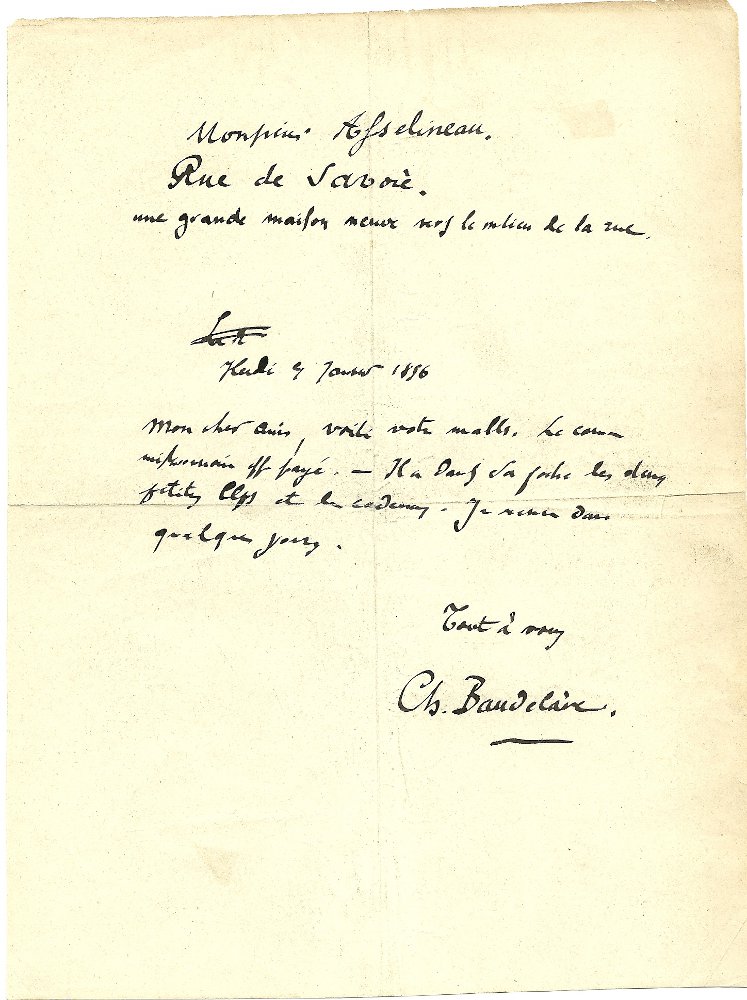 Monsieur Asselineau.
Rue de Savoie.
une grande maison neuve vers le milieu de la rue.
Jeudi Janvier 1856
Mon cher ami, voici votre malle. Le com
missionnaire est payé. — Il a dans sa poche les deux
petites clefs et le cadenas. Je dans
quelques jours.
Tout à vous
Ch. Baudelaire.